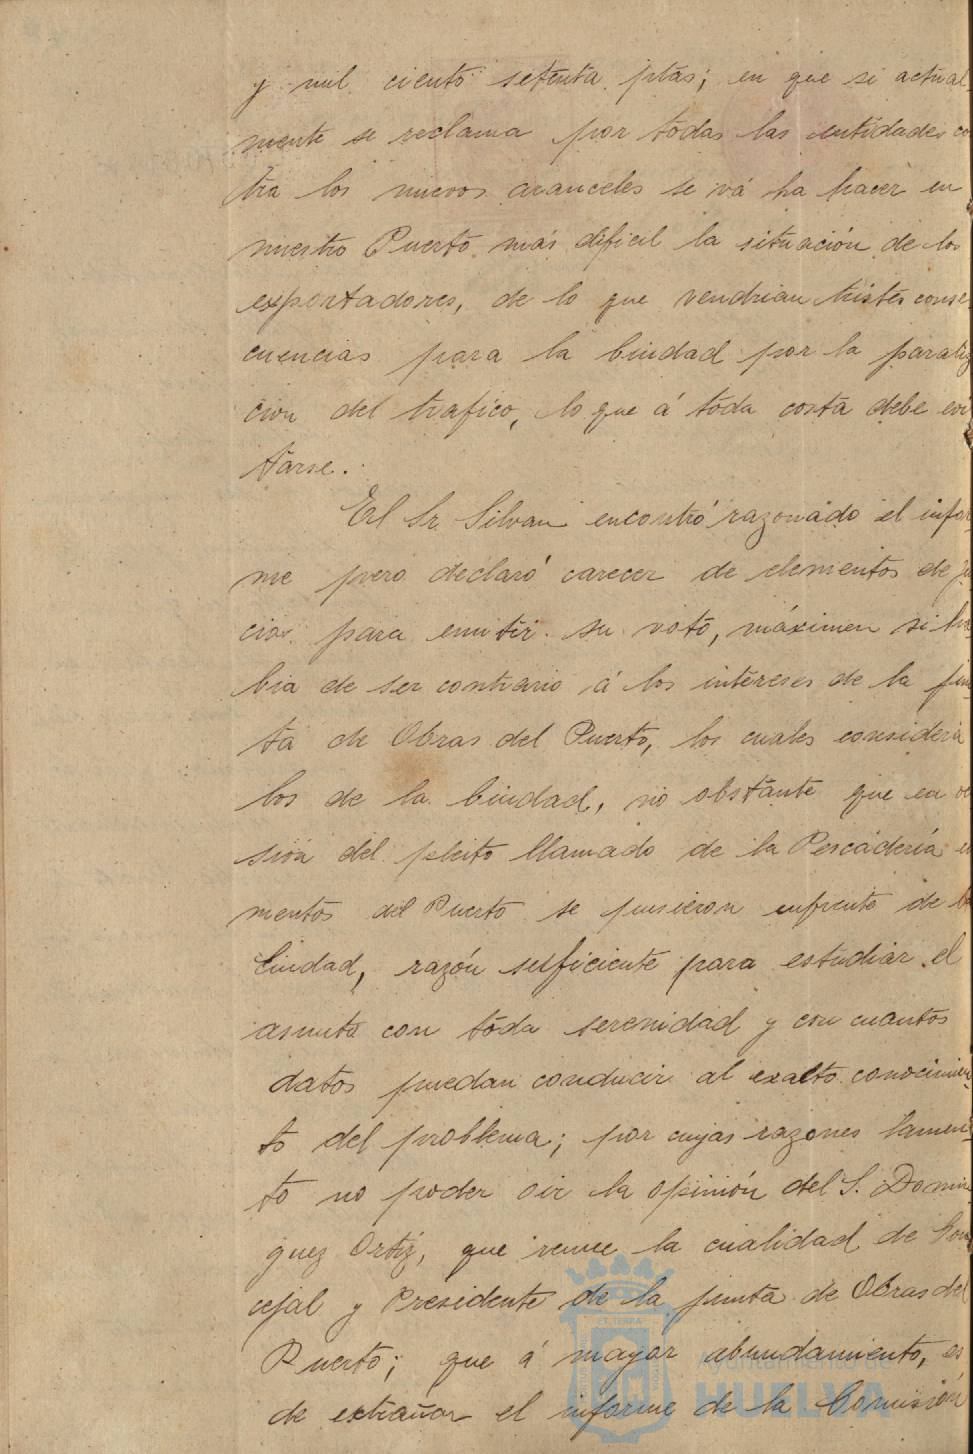 y mil ciento setenta ptas; en que si actual-
mente se reclama por todas las entidades co
tra los nuevos aranceles se vá ha hacer en
nuestro Puerto más dificil la situación de los
exportadores, de lo que vendrian tristes conse-
cuencias para la Ciudad por la paraliz
cion del trafico, lo que á toda costa debe evi
tarse.
El Sr. Silvan encontró razonado el infor
me pero declaró carecer de elementos de ju
cios para emitir su voto, máximen si ha
bia de ser contrario á los intereses de la jun-
ta de Obras del Puerto, los cuales considera
los de la Ciudad, no obstante que en oca
sion del pleito llamado de la Pescadería el
mentos del Puerto se pusieron enfrente de la
Ciudad, razón suficiente para estudiar el
asunto con toda serenidad y con cuantos
datos puedan conducir al exalto conocimien-
to del problema; por cuyas razones lamen-
to no poder oir la opinión del S. Domin-
guez Ortiz, que reune la cualidad de Con-
cejal y Presidente de la junta de Obras del
Puerto; que á mayor abundamiento, es
de extrañar el informe de la Comisión
Ayuntamiento de
HUELVA